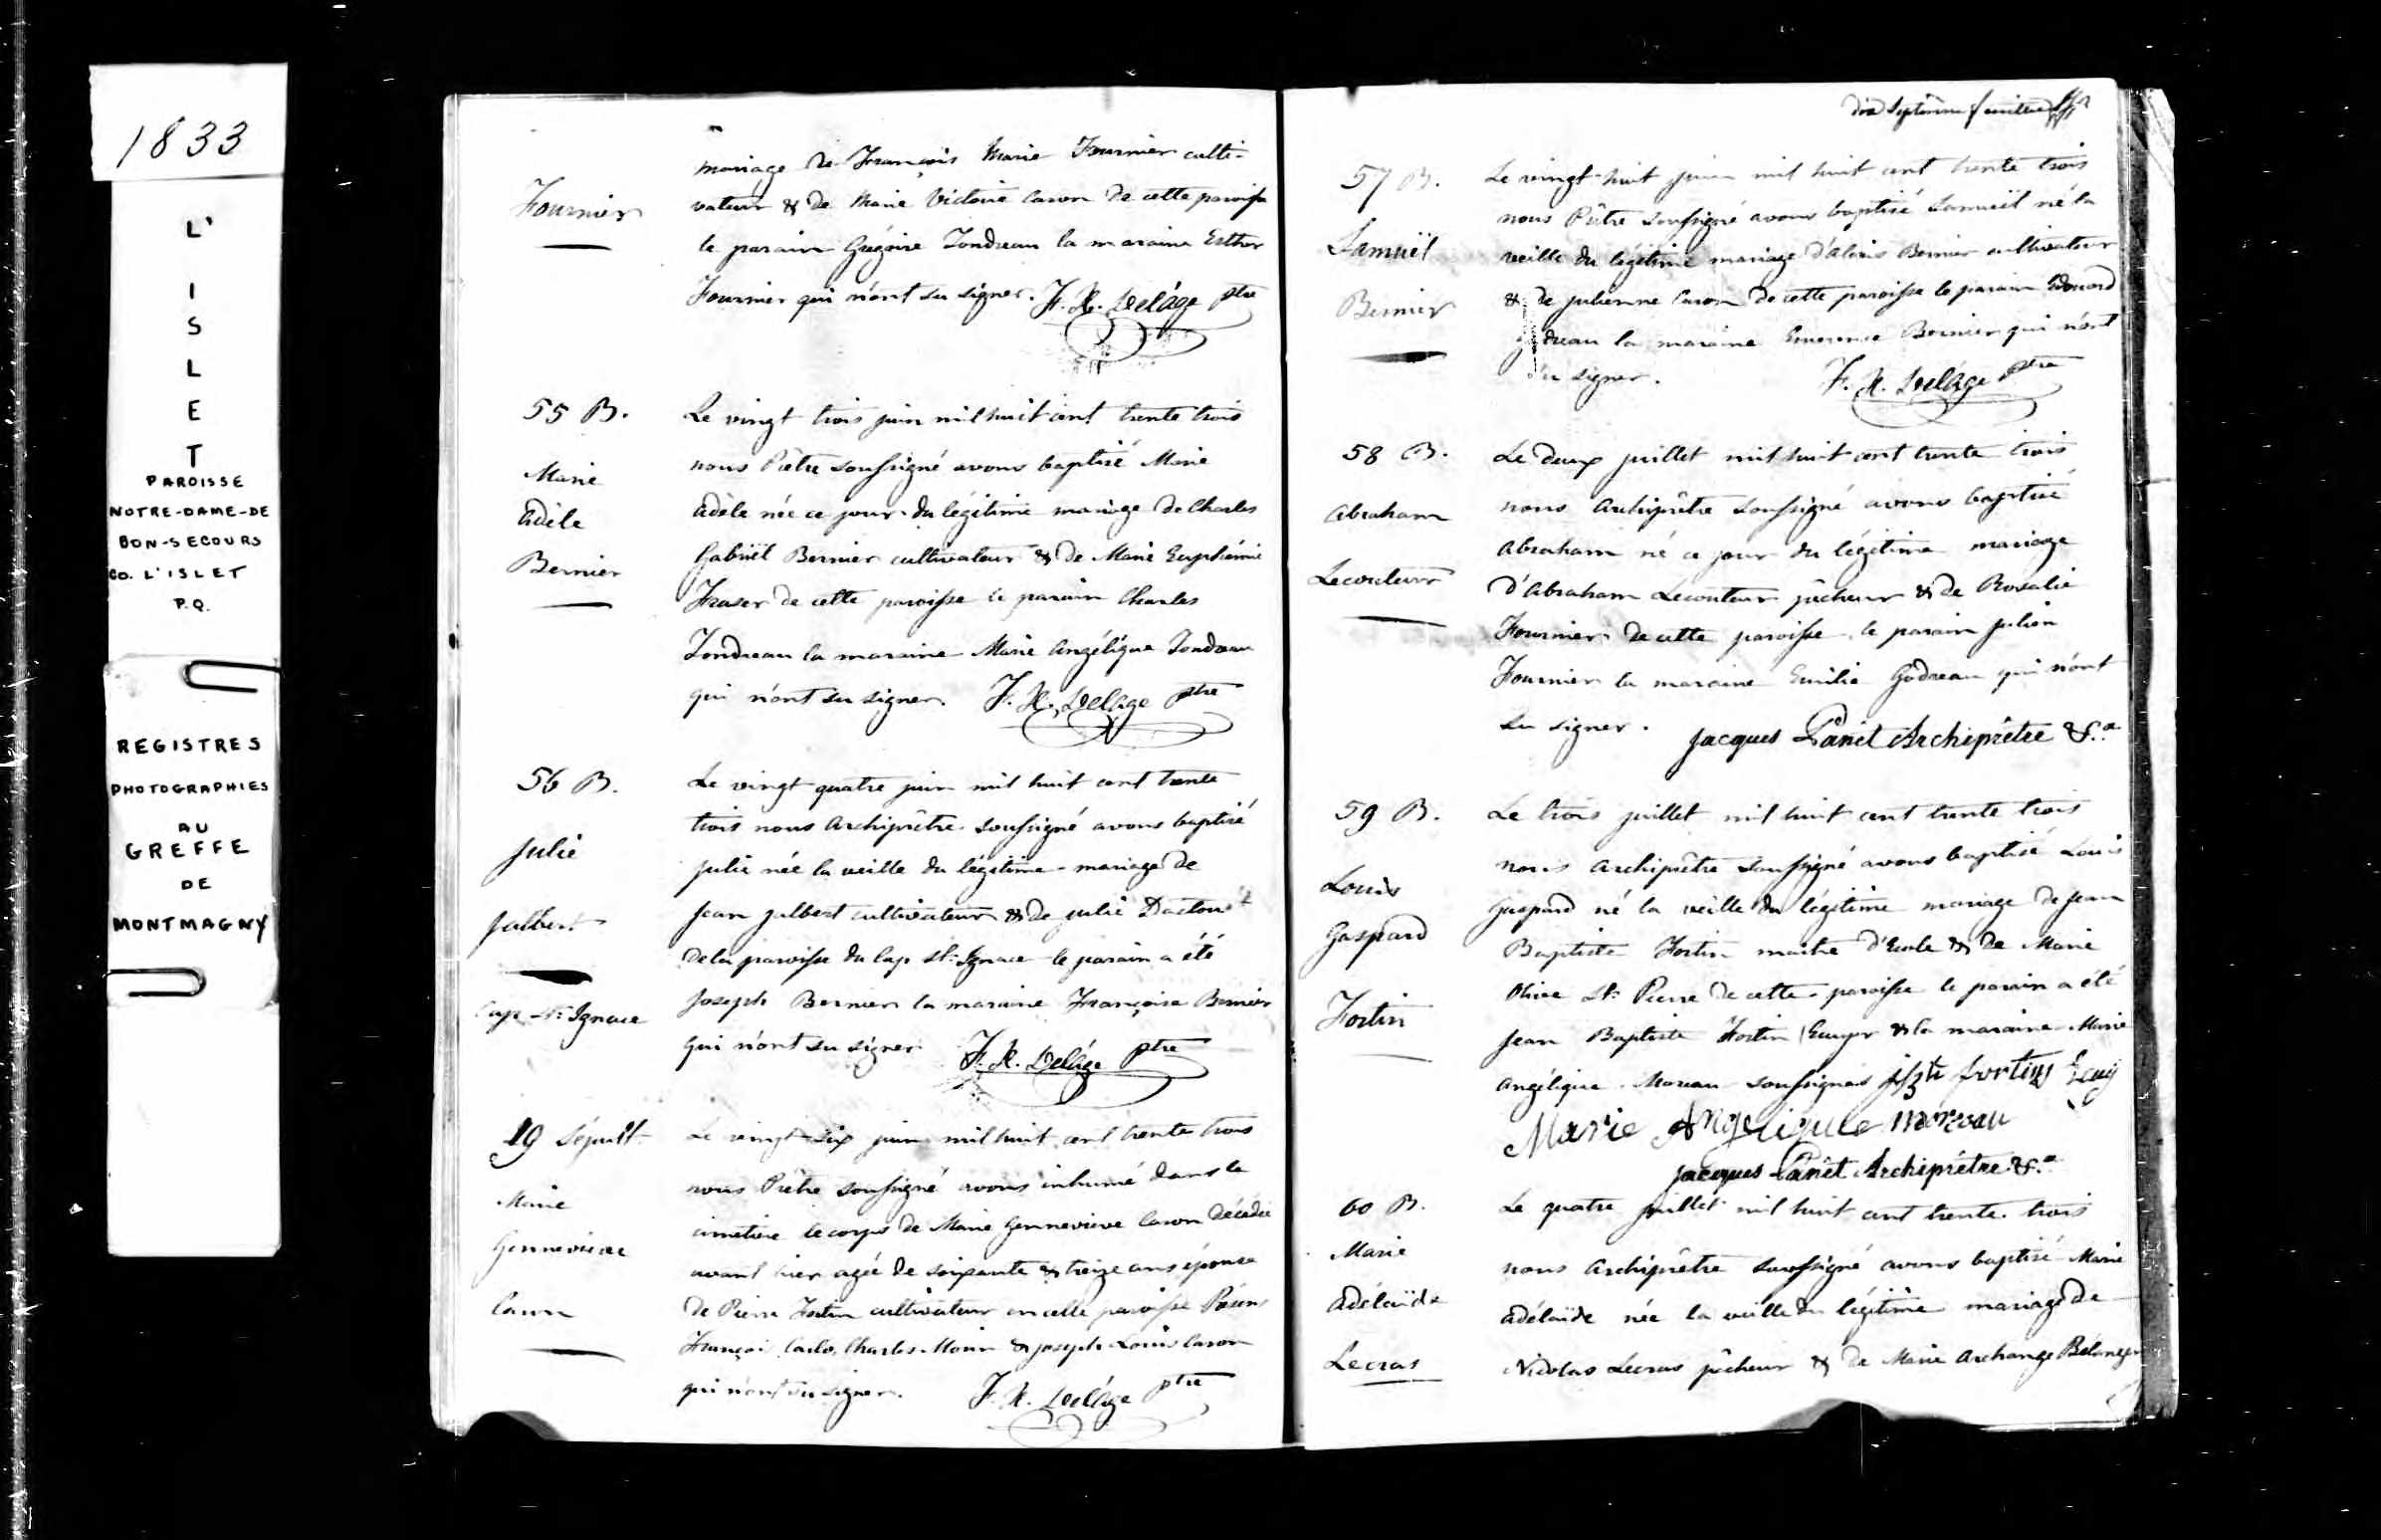 1833
L'
I
S
L
E
T
PAROISSE
NOTRE-DAME-DE
BON-SECOURS
CO. L'ISLET
P.Q.
REGISTRES
PHOTOGRAPHIES
AU
GREFFE
DE
MONTMAGNY
Fournier
mariage de François Marie Fournier culti-
vateur & de Marie Victoire Caron de cette paroisse
le parain Grégoire Tondreau la maraine Esther
Fournier qui n'ont su signer. F. X. Delâge ptre
55 B.
Marie
Adèle
Bernier
Le vingt trois juin mil huit cent trente trois
nous Prêtre soussigné avons baptisé Marie
Adèle née ce jour du légitime mariage de Charles
Gabriël Bernier cultivateur & de Marie Euphémie
Fraser de cette paroisse le parain Charles
Tondreau la maraine Marie Angélique Tondreau
qui n'ont su signer. F. X. Delâge ptre
56 B.
Julie
Jalbert
Cap St Ignace
Le vingt quatre juin mil huit cent trente
trois nous Archiprêtre soussigné avons baptisé
Julie née la veille du légitime mariage de
Jean Jalbert cultivateur & de Julie
de la paroisse du Cap St Ignace le parain a été
Joseph Bernier la maraine Françoise Bernier
qui n'ont su signer F. X. Delâge ptre
19 Sépult.
Marie
Gennevieve
Caron
Le vingt-six juin mil huit cent trente trois
nous Prêtre soussigné avons inhumé dans le
cimetière le corps de Marie Gennevieve Caron décédée
avant hier agée de soixante & treize ans épouse
de Pierre Fortin cultivateur en cette paroisse Présens
François Charles Morin & Joseph Louis Caron
qui n'ont su signer. F. X. Delâge ptre
dix Septième feuillet
57 B.
Samuël
Bernier
Le vingt-huit juin mil huit cent trente trois
nous Prêtre soussigné avons baptisé Samuël né la
veille du légitime mariage d'Alexis Bernier cultivateur
& de Julienne Caron de cette paroisse le parain Edouard
Godreau la maraine Emerence Bernier qui n'ont
su signer. F. X. Delâge ptre
58 B.
Abraham
Lecouteur
Le deux juillet mil huit cent trente trois
nous Archiprêtre soussigné avons baptisé
Abraham né ce jour du légitime mariage
d'Abraham Lecouteur pêcheur & de Rosalie
Fournier de cette paroisse le parain Julien
Fournier la maraine Emilie Godreau qui n'ont
su signer. Jacques Panet Archiprêtre &.a
59 B.
Louis
Gaspard
Fortin
Le trois juillet mil huit cent trente trois
nous Archiprêtre soussigné avons baptisé Louis
Gaspard né la veille du légitime mariage de Jean
Baptiste Fortin maitre d'Ecole & de Marie
Olive St Pierre de cette paroisse le parain a été
Jean Baptiste Fortin Ecuyer & la maraine Marie
Angélique Moreau soussignés fortin Ecuy
Marie Angelique moreau
Jacques Panet Archiprêtre &.a
60 B.
Marie
Adélaïde
Lecras
Le quatre juillet mil huit cent trente trois
nous Archiprêtre soussigné avons baptisé Marie
Adélaïde née la veille du légitime mariage de
Nicolas Lecras pêcheur & de Marie Archange Bélanger